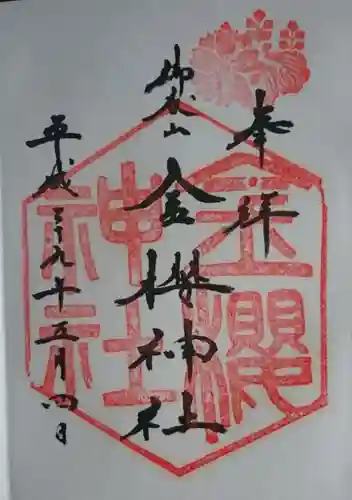 奉拝
御嶽山
金櫻神社
平成二十九年十二月四日
金櫻
神社